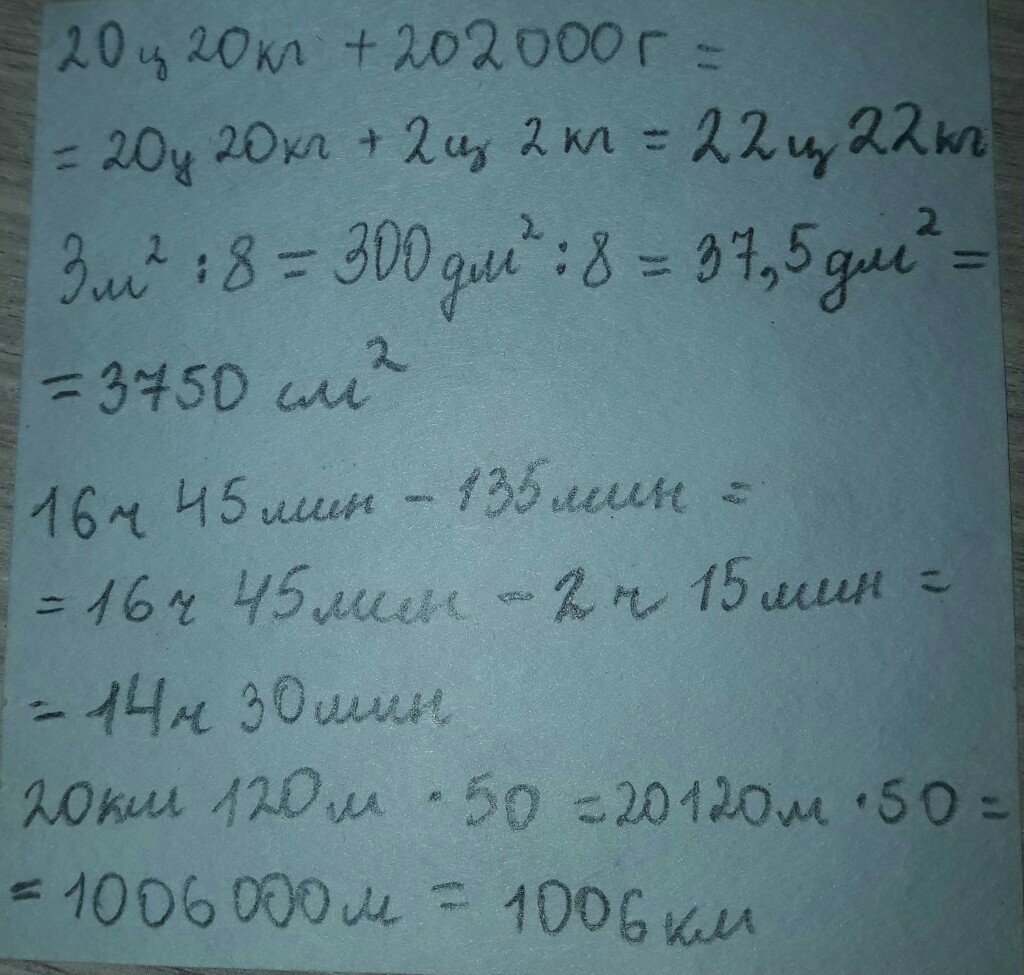 20ц 20кг + 202000г =
= 20ц 20кг + 2ц 2кг = 22ц 22кг
3м² : 8 = 300дм² : 8 = 37,5дм² =
= 3750 см²
16ч 45мин - 135мин =
= 16ч 45мин - 2ч 15мин =
= 14ч 30мин
20км 120м · 50 = 20120м · 50 =
= 1006000м = 1006км